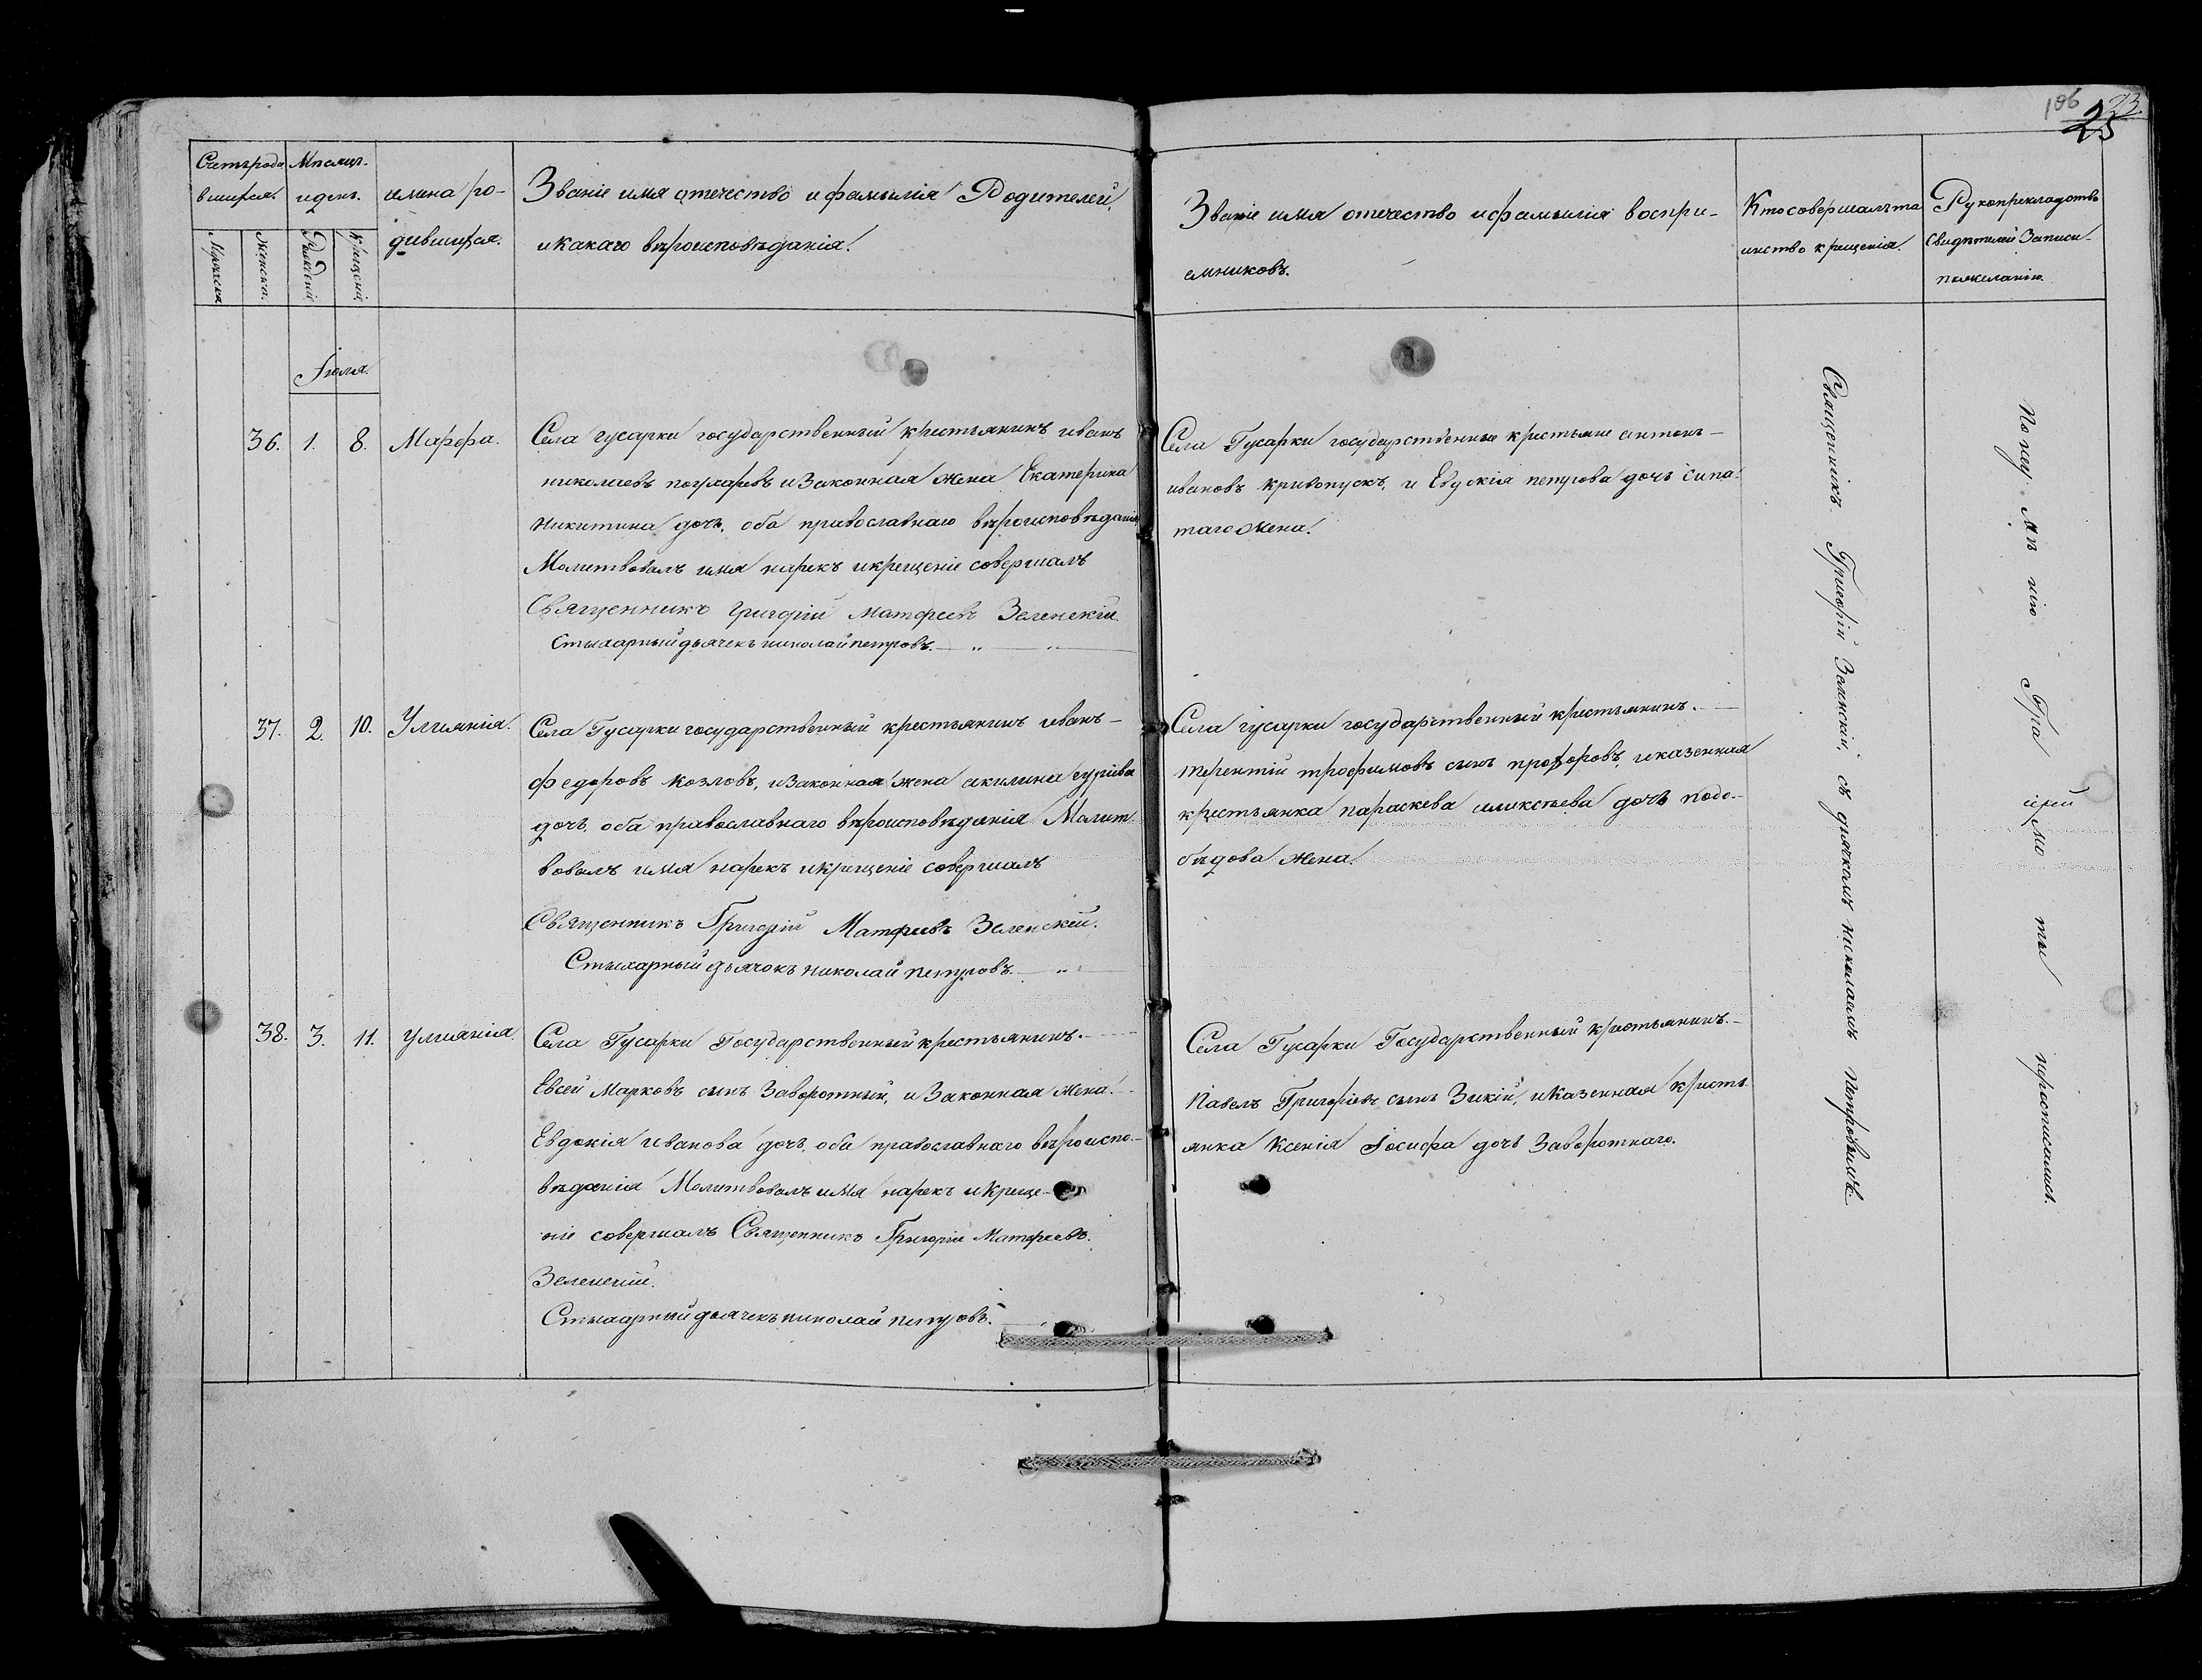 106 23.
25
Счетъ рода
вшихся.
Мужеска
Женска.
Месяцъ
и день.
Рождения
Крещения
имена ро-
дившихся.
Званіе имя отечество и фамылія Родителей,
и какаго вѣроисповѣданія.
Званіе имя отечество и фамылія воспри-
емниковъ.
Кто совершалъ та
инство крещенія.
Рукоприкладство
свидѣтелей Записи
по желанію.
Іюля.
36. 1. 8. Марфа.
Села гусарки государственный крестьянинъ иванъ
николаевъ и Законная жена Екатерина
Никитина дочь, оба православнаго вѣроисповѣданія
Молитвовалъ имя нарекъ и крещеніе совершалъ
Священникъ Григорій Матфеевъ Зеленскій
Стихарный дьячекъ николай петровъ.
Села Гусарки государственные крестьяне антонъ
ивановъ кривопускъ, и Евдокія петрова дочь
жена.
37. 2. 10. Улиянія.
Села Гусарки государственный крестьянинъ иванъ
федоровъ козловъ, и Законная жена акилина гуріева
дочь, оба православнаго вѣроисповѣданія Молит
вовалъ имя нарекъ и крещеніе совершалъ
Священникъ Григорій Матфеевъ Зеленскій.
Стихарный дьячокъ николай петровъ.
Села гусарки государственный крестьянинъ.
терентій трофимовъ сынъ и казенная
крестьянка параскева аликсѣева дочь подо-
бѣдова жена.
38. 3. 11. Улиянія.
Села Гусарки Государственный крестьянинъ.
Евсей Марковъ сынъ Заворотный, и Законная Жена.
Евдокія иванова дочь, оба православнаго вѣроиспо-
вѣданія Молитвовалъ имя нарекъ и креще-
ніе совершалъ Священникъ Григорій Матфеевъ.
Зеленскій.
Стихарный дьячекъ николай петровъ.
Села Гусарки Государственный крестьянинъ.
Павелъ Григоріевъ сынъ Зикій, и казенная кресть
янка Ксенія Іосифа дочь Заворотнаго.
Священникъ Григорій Зеленскій, съ дьячкомъ николаемъ Петровымъ.
По неу мѣ нію Гра